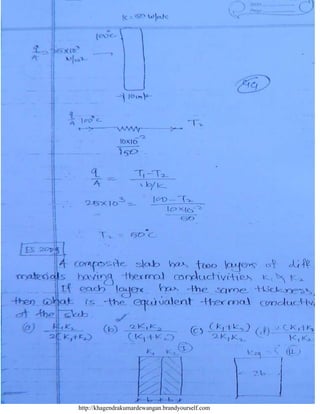 K=50 W/mk
100°C
q/A = 25x10³ W/m²
10cm
q/A 100°C
T₂
10x10⁻²
50
q/A = T₁-T₂ / b/K
25x10³ = 100-T₂ / 10x10⁻² / 50
T₂ = 50°C
A composite slab has two layers of diff.
materials having thermal conductivities K₁ & K₂
If each layer has the same thickness,
then what is the equivalent thermal conductiv
of the slab.
(a) K₁K₂ / 2(K₁+K₂) (b) 2K₁K₂ / (K₁+K₂) (c) (K₁+K₂) / 2K₁K₂ (d) (K₁+K₂ / K₁K₂
K₁ K₂ ① Keq = ②
2b
b b
http://khagendrakumardewangan.brandyourself.com